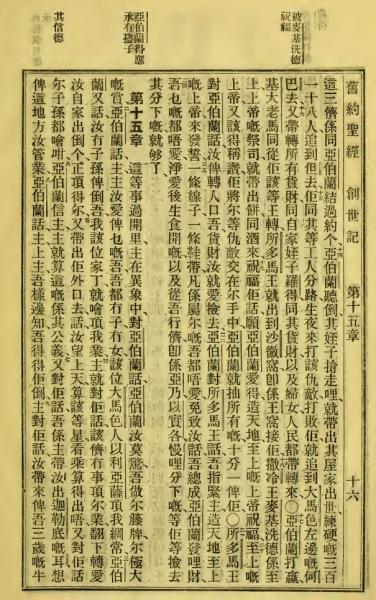 被麥基洗德
祝福
亞伯蘭得應
承有孻子
其信德
舊約聖經 創世記 第十五章 十六
這三儕係同亞伯蘭結過約个亞伯蘭聽倒其姪子搶走哩就帶出其屋家出世練硬嘅三百
一十八人追到但去佢同其等工人分路生夜來打該仇敵打敗佢就追到大馬色左邊嘅何
巴去又帶轉所有貨財同自家姪子羅得同其貨財以及婦女人民都帶轉來○亞伯蘭打贏
基大老馬同從佢該等王轉所多馬王就出到沙微窩卽係王窩接佢撒冷王麥基洗德係至
上上帝嘅祭司就帶出餅同酒來祝福佢話願亞伯蘭愛得造天地至上嘅上帝祝福至上嘅
上帝又該得稱讚佢將尔等仇敵交在尔手中亞伯蘭就抽所有嘅十分一俾佢○所多馬王
對亞伯蘭話汝俾轉人口吾貨財汝就愛撿去亞伯蘭對所多馬王話吾指緊主造天地至上
嘅上帝來發誓一條線子一條鞋帶凡係屬尔嘅吾都唔愛免致汝話吾總成亞伯蘭發哩財
吾乜嘅都唔愛淨愛後生食開嘅以及從吾行儕卽係亞乃以實各慢哩分下嘅等佢等撿去
其分下嘅就够了
第十五章 這等事過開里主在異象中對亞伯蘭話亞伯蘭汝莫驚吾做尔籐牌尔極大
嘅賞亞伯蘭話主主汝愛俾乜嘅吾吾都冇子冇女該位大馬色人以利亞薩頂我綱常亞伯
蘭又話汝冇子孫俾倒吾我該位家丁就噲頂我業主就對佢話該儕冇事項尔業翻下轉愛
汝自家出倒个正頂得尔又帶出佢外口去話汝望上天算該等星看乘算得出唔又對佢話
尔子孫都噲咁亞伯蘭信主主就算這嘅係其公義又對佢話吾係主帶汝出迦勒底嘅耳想
俾這地方汝管業亞伯蘭話主上主吾樣邊知吾得得佢倒主對佢話汝帶來俾吾三歲嘅牛